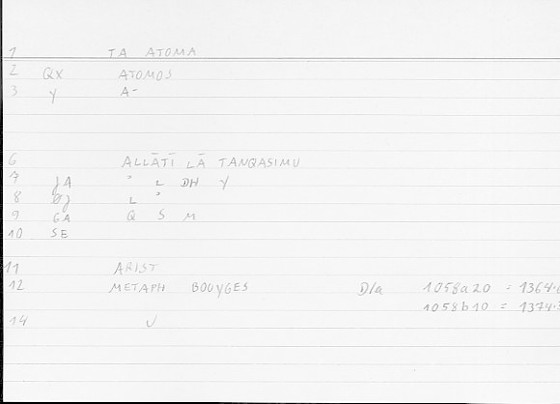 1 TA ATOMA
2 QX ATOMOS
3 Y A-
6 ALLĀTĪ LĀ TANQASIMU
7 JA " L DH Y
8 L "
9 GA Q S M
10 SE
11 ARIST
12 METAPH BOUYGES D/a 1058a20 = 1364.
1058b10 = 1374.
14 U